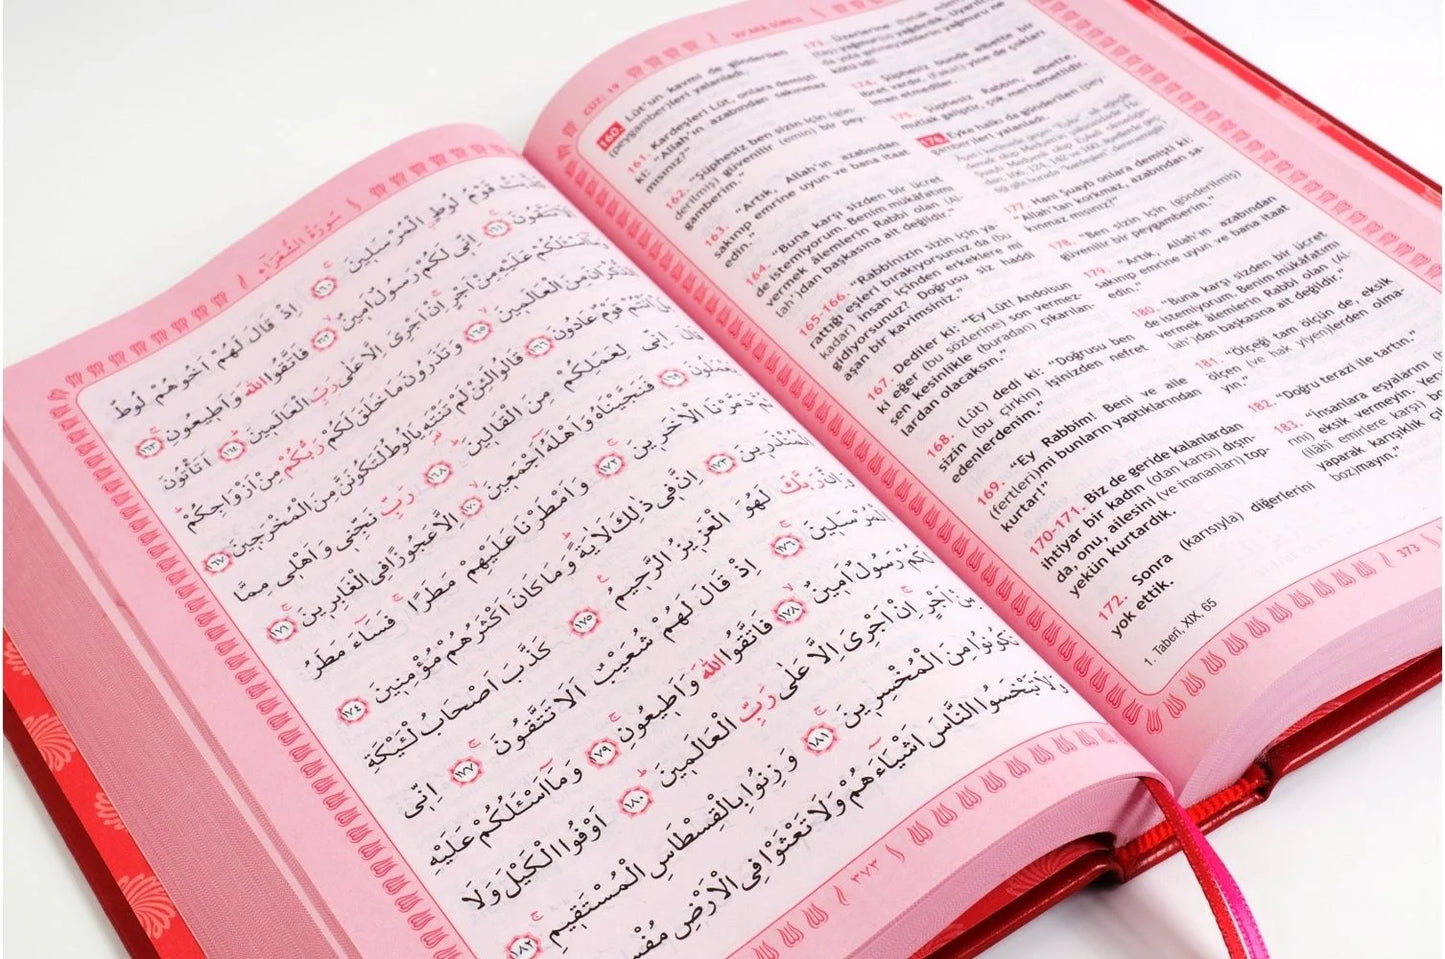 سُورَةُ الشُّعَرَاءِ
كَذَّبَتْ قَوْمُ لُوطٍ الْمُرْسَلِينَ ١٦٠ اِذْ قَالَ لَهُمْ اَخُوهُمْ لُوطٌ
اَلَا تَتَّقُونَ ١٦١ اِنّى لَكُمْ رَسُولٌ اَمِينٌ ١٦٢ فَاتَّقُوا اللّٰهَ وَاَطِيعُونِ ١٦٣
وَمَا اَسْئَلُكُمْ عَلَيْهِ مِنْ اَجْرٍ اِنْ اَجْرِىَ اِلَّا عَلٰى رَبِّ الْعَالَمِينَ ١٦٤ اَتَاْتُونَ
الذُّكْرَانَ مِنَ الْعَالَمِينَ ١٦٥ وَتَذَرُونَ مَا خَلَقَ لَكُمْ رَبُّكُمْ مِنْ اَزْوَاجِكُمْ
بَلْ اَنْتُمْ قَوْمٌ عَادُونَ ١٦٦ قَالُوا لَئِنْ لَمْ تَنْتَهِ يَا لُوطُ لَتَكُونَنَّ مِنَ الْمُخْرَجِينَ ١٦٧
قَالَ اِنّى لِعَمَلِكُمْ مِنَ الْقَالِينَ ١٦٨ رَبِّ نَجِّنى وَاَهْلى مِمَّا
يَعْمَلُونَ ١٦٩ فَنَجَّيْنَاهُ وَاَهْلَهُ اَجْمَعِينَ ١٧٠ اِلَّا عَجُوزًا فِى الْغَابِرِينَ ١٧١
ثُمَّ دَمَّرْنَا الْاٰخَرِينَ ١٧٢ وَاَمْطَرْنَا عَلَيْهِمْ مَطَرًا فَسَاءَ مَطَرُ
الْمُنْذَرِينَ ١٧٣ اِنَّ فى ذٰلِكَ لَاٰيَةً وَمَا كَانَ اَكْثَرُهُمْ مُؤْمِنِينَ ١٧٤
وَاِنَّ رَبَّكَ لَهُوَ الْعَزِيزُ الرَّحِيمُ ١٧٥ كَذَّبَ اَصْحَابُ لْئَيْكَةِ
الْمُرْسَلِينَ ١٧٦ اِذْ قَالَ لَهُمْ شُعَيْبٌ اَلَا تَتَّقُونَ ١٧٧ اِنّى
لَكُمْ رَسُولٌ اَمِينٌ ١٧٨ فَاتَّقُوا اللّٰهَ وَاَطِيعُونِ ١٧٩ وَمَا اَسْئَلُكُمْ عَلَيْهِ
مِنْ اَجْرٍ اِنْ اَجْرِىَ اِلَّا عَلٰى رَبِّ الْعَالَمِينَ ١٨٠ اَوْفُوا الْكَيْلَ وَلَا
تَكُونُوا مِنَ الْمُخْسِرِينَ ١٨١ وَزِنُوا بِالْقِسْطَاسِ الْمُسْتَقِيمِ ١٨٢
وَلَا تَبْخَسُوا النَّاسَ اَشْيَاءَهُمْ وَلَا تَعْثَوْا فِى الْاَرْضِ
٣٧٣
CÜZ: 19
ŞU'ARA SÛRESİ
160. Lût'un kavmi de gönderilen
(peygamber)leri yalanladı.
161. Kardeşleri Lût, onlara demişti
ki: "Allah'ın azabından sakınmaz
mısınız?"
162. "Şüphesiz ben sizin için (gön-
derilmiş) güvenilir (emin) bir pey-
gamberim."
163. "Artık, Allah'ın azabından
sakınıp emrine uyun ve bana itaat
edin."
164. "Buna karşı sizden bir ücret
de istemiyorum. Benim mükâfatımı
vermek âlemlerin Rabbi olan (Al-
lah')dan başkasına ait değildir."
165-166. "Rabbinizin sizin için ya-
rattığı eşleri bırakıyorsunuz da (bu
kadar) insan içinden erkeklere mi
gidiyorsunuz? Doğrusu siz haddi
aşan bir kavimsiniz."
167. Dediler ki: "Ey Lût! Andolsun
ki eğer (bu sözlerine) son vermez-
sen kesinlikle (buradan) çıkarılan-
lardan olacaksın."
168. (Lût) dedi ki: "Doğrusu ben
sizin (bu çirkin) işinizden nefret
edenlerdenim."
169. "Ey Rabbim! Beni ve aile
(fertleri)mi bunların yaptıklarından
kurtar!"
170-171. Biz de geride kalanlardan
ihtiyar bir kadın (olan karısı) dışın-
da, onu, ailesini (ve inananları) top-
yekün kurtardık.
172. Sonra (karısıyla) diğerlerini
yok ettik.
1. Taberî, XIX, 65
173. Üzerlerine (helak eden)
(taş) yağmur(u) yağdırdık. Uyarılıp
da yola gelmeyenlerin yağmuru ne
kötü idi!
174. Şüphesiz bunda elbette bir
ibret vardır. (Fakat) yine de çokları
iman etmediler.
175. Şüphesiz Rabbin, elbette,
mutlak galiptir, çok merhametlidir.
176. Eyke halkı da gönderilen (pey-
gamber)leri yalanladı.
177. Hani Şuayb onlara demişti ki:
"Allah'tan korkmaz, azabından sa-
kınmaz mısınız?"
178. "Ben sizin için (gönderilmiş)
güvenilir bir peygamberim."
179. "Artık, Allah'ın azabından
sakınıp emrine uyun ve bana itaat
edin."
180. "Buna karşı sizden bir ücret
de istemiyorum. Benim mükâfatımı
vermek âlemlerin Rabbi olan (Al-
lah')dan başkasına ait değildir."
181. "Ölçeği tam ölçün de, eksik
ölçen (ve hak yiyen)lerden olma-
yın."
182. "Doğru terazi ile tartın."
183. "İnsanlara eşyalarını
eksik vermeyin.
(ilâhî emirlere karşı)
yaparak karışıklık
boz)mayın."
373